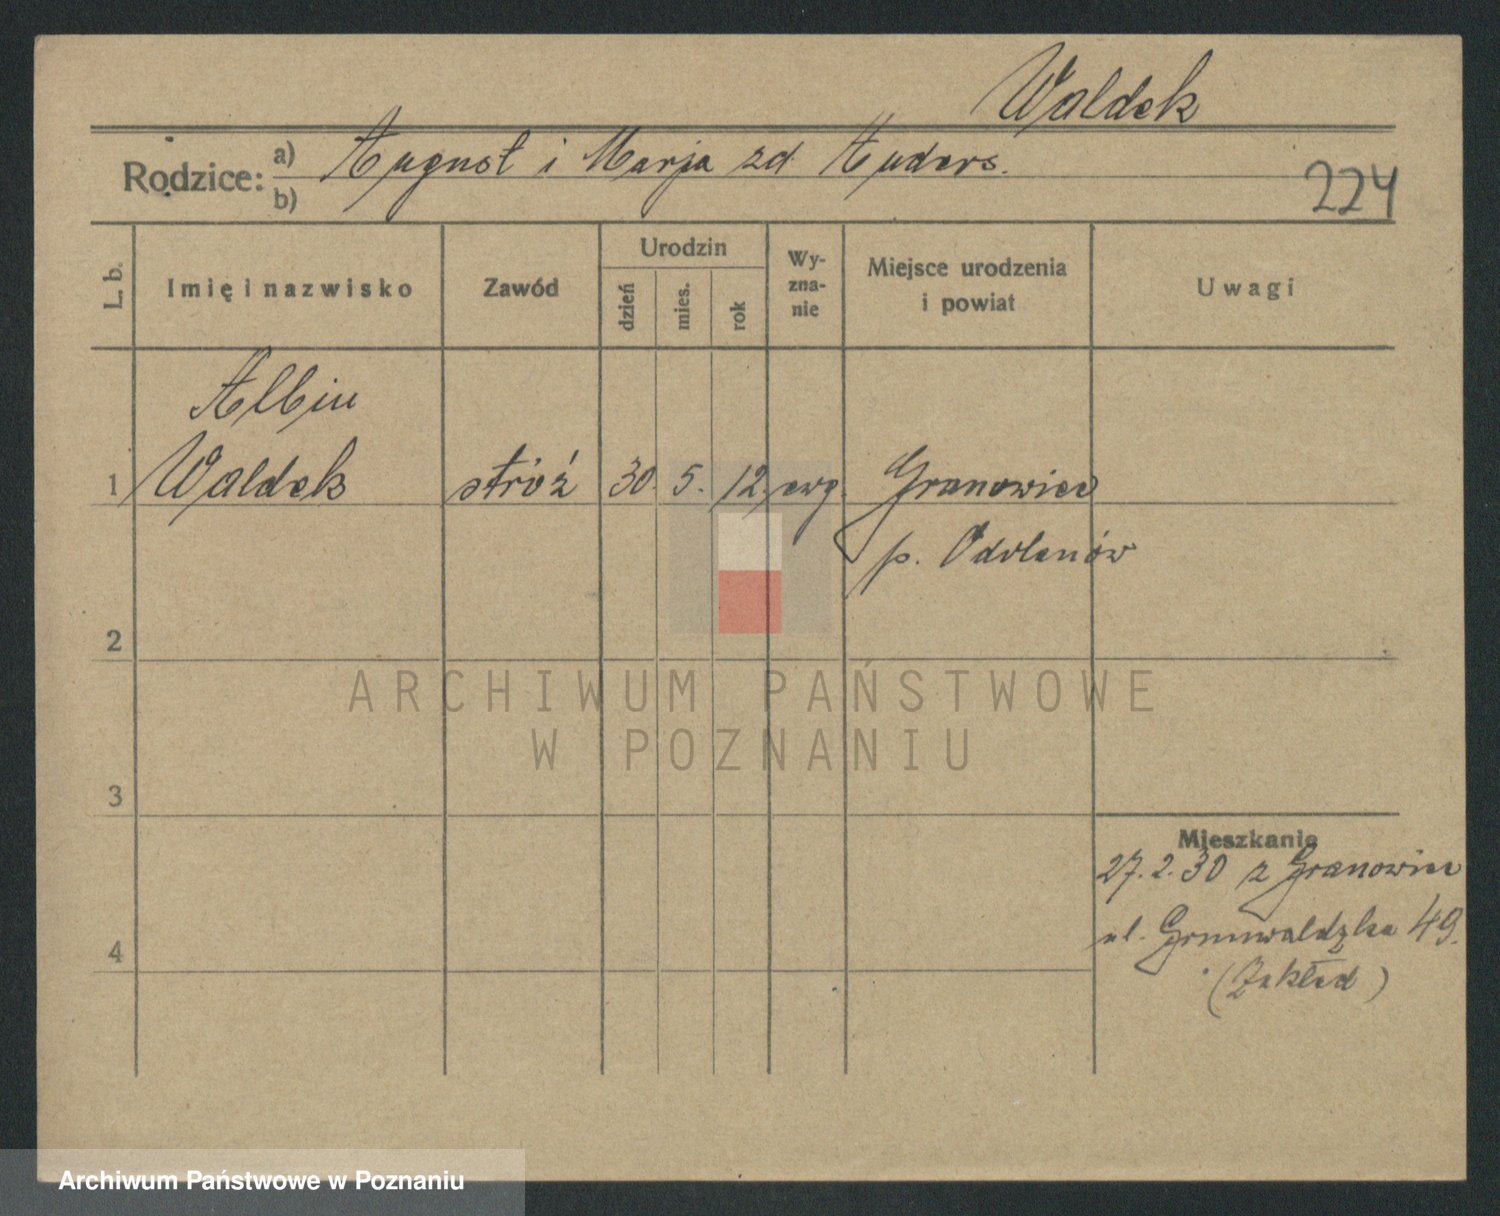 Waldek
Rodzice: a) August i Marja zd Anders.
b)
224
L. b.
Imię i nazwisko
Zawód
Urodzin
dzień
mies.
rok
Wy-
zna-
nie
Miejsce urodzenia
i powiat
Uwagi
Albin
1 Waldek stróż 30. 5. 12. ewg. Granowiec
p. Odolanów
2
3
4
Mieszkanie
27.2.30 z Granowiec
ul. Grunwaldzka 49.
(Zakład)
ARCHIWUM PAŃSTWOWE
W POZNANIU
Archiwum Państwowe w Poznaniu